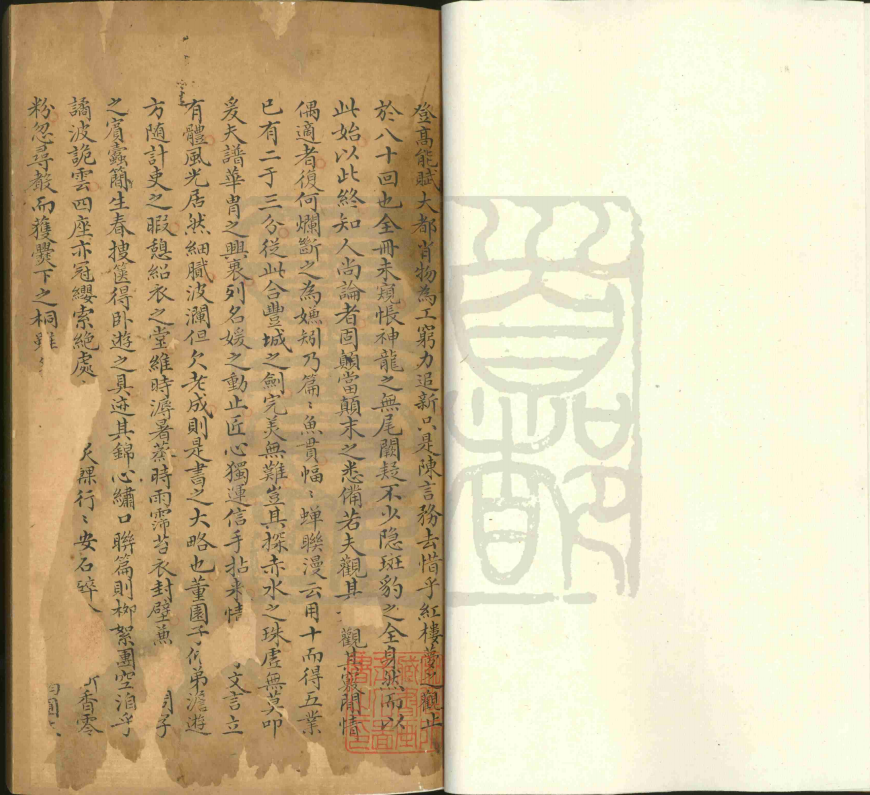 登高能賦大都肖物為工窮力追新只是陳言務去惜乎紅樓夢之觀止
於八十回也全冊未窺悵神龍之無尾闕疑不少隐斑豹之全身然而以
此始以此終知人尚論者固當顛末之悉備若夫觀其 觀其竅閒情
偶適者復何爛斷之為嫌矧乃篇〻魚貫幅〻蝉聯漫云用十而得五業
已有二于三分從此合豐城之劍完美無難豈其探赤水之珠虚無莫叩
爰夫譜華胄之興衰列名媛之動止匠心獨運信手拈来情 文言立
有體風光居然細膩波瀾但欠老成則是書之大略也董園子 弟澹遊
方随計吏之暇憩紹衣之堂維時溽暑蒸時雨霈苔衣封壁兼
之賓蠧簡生春搜篋得卧遊之具迹其錦心繡口聯篇則栁絮團空洎乎
譎波詭雲四座亦冠纓索絶處 灰 行〻安石碎 香零
粉忽尋㪚而獲爨下之桐雖